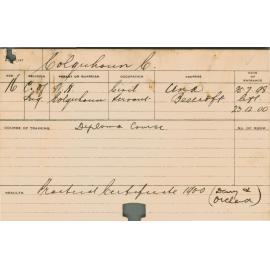 Colquhoun C.
AGE RELIGION PARENT OR GUARDIAN OCCUPATION ADDRESS DATE OF ENTRANCE
16 C. of Civil 26.7.98
Eng. Colquhoun Servant Beecroft
23.12.00
COURSE OF TRAINING Diploma Course NO. OF ROOM
RESULTS Practical Certificate 1900 (Dairy &
Orchard)